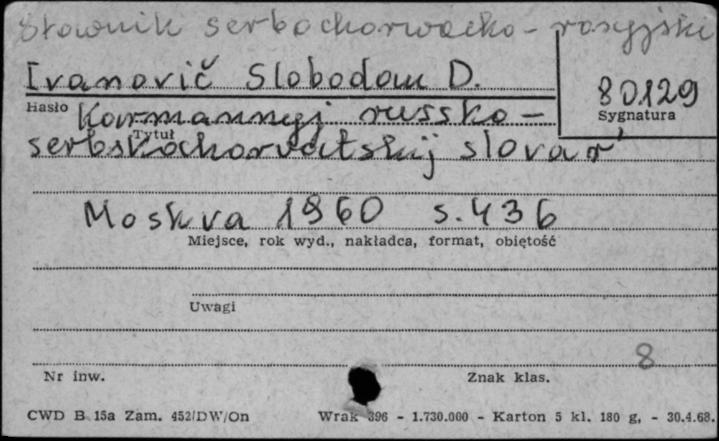 Słownik serbochorwacko-rosyjski
Ivanovič Slobodan D.
80129
Hasło
Sygnatura
Karmannyj russko-
Tytuł
serbskochorvatskij slovar'
Moskva 1960 s. 436
Miejsce, rok wyd., nakładca, format, obiętość
Uwagi
8
Nr inw.
Znak klas.
CWD B 15a Zam. 452/DW/On
Wrak 396 - 1.730.000 - Karton 5 kl. 180 g, - 30.4.68.